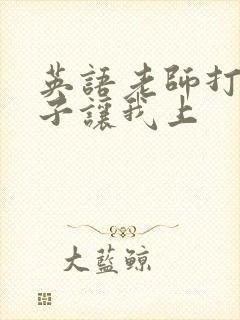 英語老師打
子讓我上
大藍鯨